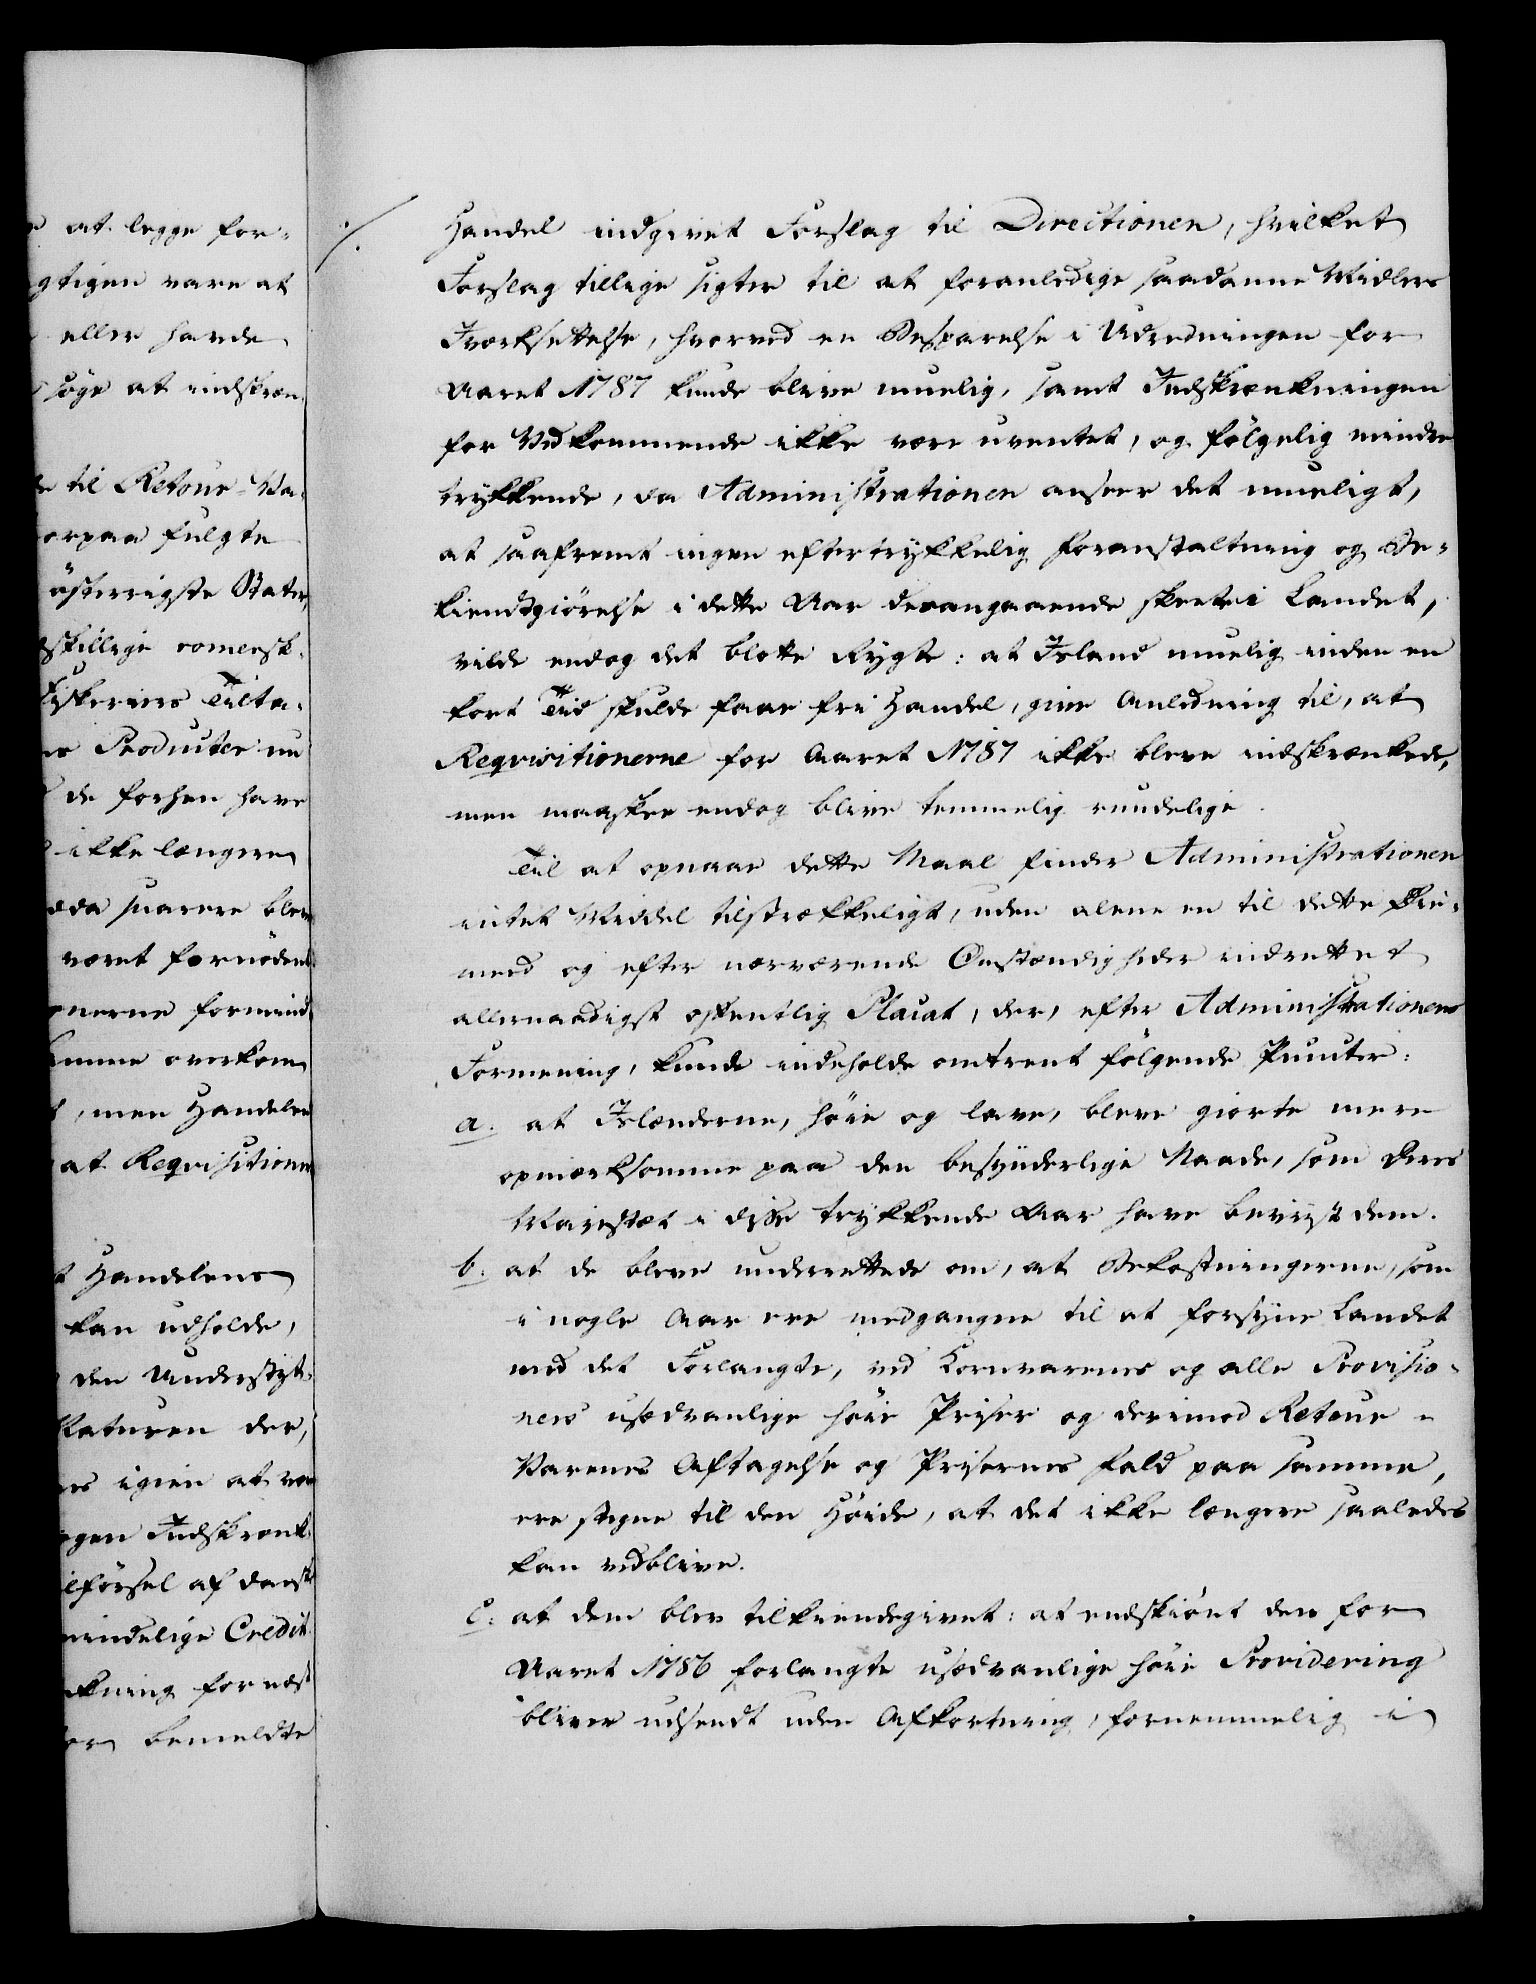 at legge for-
gtigen vare at
eller havde
søge at indskræn
til Retour-Va-
orpaa fulgte
østerrigste Stater,
dskillige romersk-
Fiskeriers Tilta-
Producter nu
de forhen have
ikke længere
svarere blev
været fornøden
onerne formind
samme overkom
, men Handelen
at Reqvisitionen
Handelens
kan udholde,
den Understøt-
Naturen der,
igien at væ
ogen Indskrænk-
ilførsel af dansk
indelige Credit
kning for næst
or bemeldte
Handel indgivet Forslag til Directionen, hvilket
Forslag tillige sigter til at foranledige saadanne Midlers
Iværksættelse, hvorved en Besparelse i Udredningen for
Aaret 1787 kunde blive muelig, samt Indskrænkningen
for Vedkommende ikke være uventet, og følgelig mindre
trykkende, da Administrationen anseer det mueligt,
at saafremt ingen eftertrykkelig Foranstaltning og Be-
kiendtgiørelse i dette Aar desangaaende skeete i Landet,
vilde endog det blotte Rygte: at Island muelig inden en
kort Tid skulde faae fri Handel, give Anledning til, at
Reqvisitionerne for Aaret 1787 ikke bleve indskrænkede,
men maaskee endog blive temmelig rundelige.
Til at opnaae dette Maal finder Administrationen
intet Middel tilstrækkeligt, uden alene en til dette Øie-
meed og efter nærværende Omstændigheder indrettet
allernaadigst offentlig Placat, der, efter Administrationens
Formening, kunde indeholde omtrent følgende Puncter:
a. at Islænderne, høie og lave, bleve giorte mere
opmærksomme paa den besynderlige Naade, som Deres
Majestæt i disse trykkende Aar have beviist dem.
b. at de bleve underrettede om, at Bekostningerne, som
i nogle Aar ere medgangne til at forsyne Landet
med det Forlangte, ved Kornvarenes og alle Provisio-
ners usædvanlige høie Priser og derimod Retour-
Varenes Aftagelse og Prisernes Fald paa samme,
ere stegne til den Høide, at det ikke længere saaledes
kan vedblive.
c: at dem blev tilkiendegivet: at endskiønt den for
Aaret 1786 forlangte usædvanlige høie Providering
bliver udsendt uden Afkortning, fornemmelig i